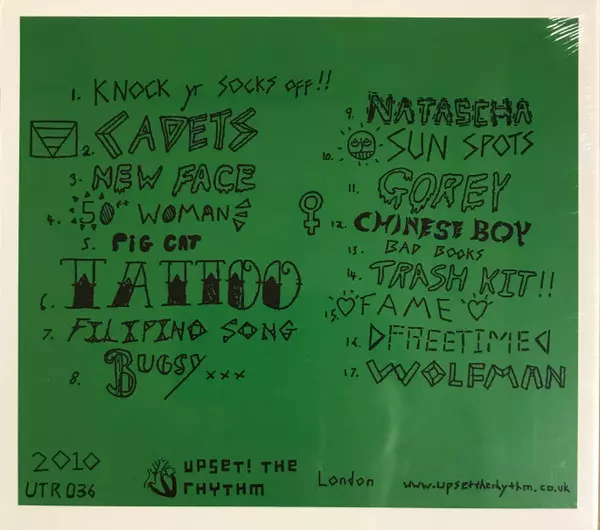 1. KNOCK yr SOCKS OFF!!
2. CADETS
3. NEW FACE
4. 50FT WOMAN
5. PIG CAT
6. TATTOO
7. FILIPINO SONG
8. BUGSY xxx
9. NATASCHA
10. SUN SPOTS
11. GOREY
12. CHINESE BOY
13. BAD BOOKS
14. TRASH KIT!!
15. FAME
16. FREETIME
17. WOLFMAN
2010
UTR 036
UPSET! THE
RHYTHM
London
www.upsettherhythm.co.uk